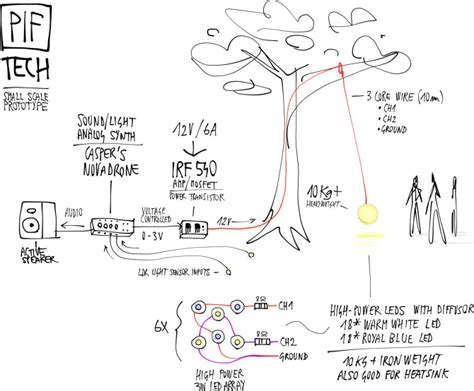 PIF
TECH
SMALL SCALE
PROTOTYPE
SOUND/LIGHT
ANALOG SYNTH
CASPER'S
NOVADRONE
12V/6A
IRF540
AMP/MOSFET
POWER TRANSISTOR
3 CORE WIRE (10m)
• CH1
• CH2
• GROUND
AUDIO
VOLTAGE
CONTROLLED
0-3V
12V
10Kg+
HEAVYWEIGHT
ACTIVE
SPEAKER
LDR LIGHT SENSOR INPUTS
6X
8Ω
CH1
8Ω
CH2
GROUND
HIGH POWER
3W LED ARRAY
HIGH-POWER LEDS WITH DIFFUSOR
18* WARM WHITE LED
18* ROYAL BLUE LED
10 KG + IRON WEIGHT
ALSO GOOD FOR HEATSINK